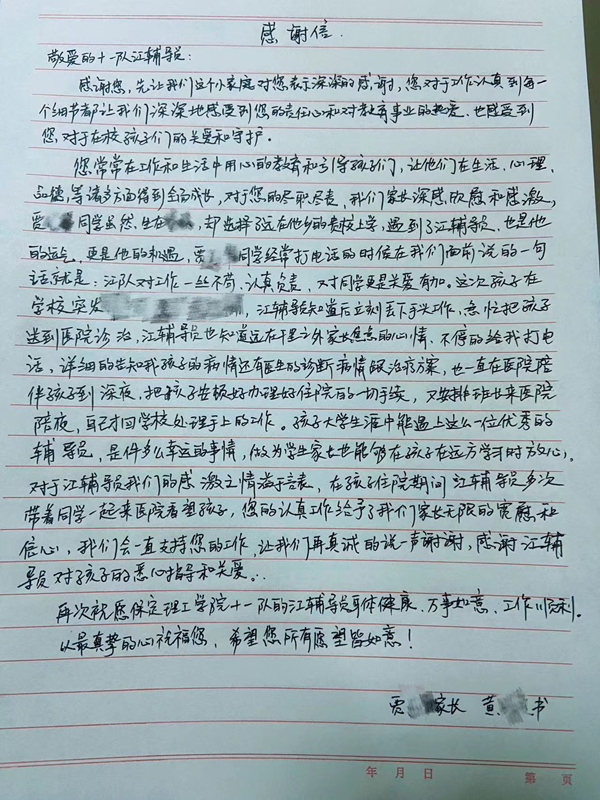 感谢信.
敬爱的十一队江辅导员:
感谢您,先让我们这个小家庭对您表示深深的感谢,您对于工作认真到每一
个细节都让我们深深地感受到您的责任心和对教育事业的热爱.也感受到
您,对于在校孩子们的关爱和守护.
您常常在工作和生活中用心的教育和引导孩子们,让他们在生活、心理、
品德,等诸多方面得到全面成长,对于您的尽职尽责,我们家长深感欣慰和感激,
贾 同学虽然.生在 ,却选择了远在他乡的贵校上学,遇到了江辅导员.也是他
的运气,更是他的机遇,贾 同学经常打电话的时候在我们面前说的一句
话就是:江队对工作一丝不苟、认真负责,对同学更是关爱有加。这次孩子在
学校突发 ,江辅导员知道后立刻丢下手头工作,急忙把孩子
送到医院诊治,江辅导员也知道远在千里之外家长焦急的心情、不停的给我打电
话,详细的告知我孩子的病情还有医生的诊断病情跟治疗方案,也一直在医院陪
伴孩子到深夜,把孩子安极好办理好住院的一切手续,又安排班长来医院
陪夜,自己才回学校处理手上的工作。孩子大学生涯中能遇上这么一位优秀的
辅导员,是件多么幸运的事情,做为学生家长也能够在孩子在远方学习时放心,
对于江辅导员我们的感激之情溢于言表,在孩子住院期间江辅导员多次
带着同学一起来医院看望孩子,您的认真工作给予了我们家长无限的宽慰和
信心,我们会一直支持您的工作,让我们再真诚的说一声谢谢,感谢江辅
导员对孩子的悉心指导和关爱。
再次祝愿保定理工学院十一队的江辅导员身体健康、万事如意、工作顺利。
以最真挚的心祝福您,希望您所有愿望皆如意!
贾 家长 黄 书
年 月 日 第 页